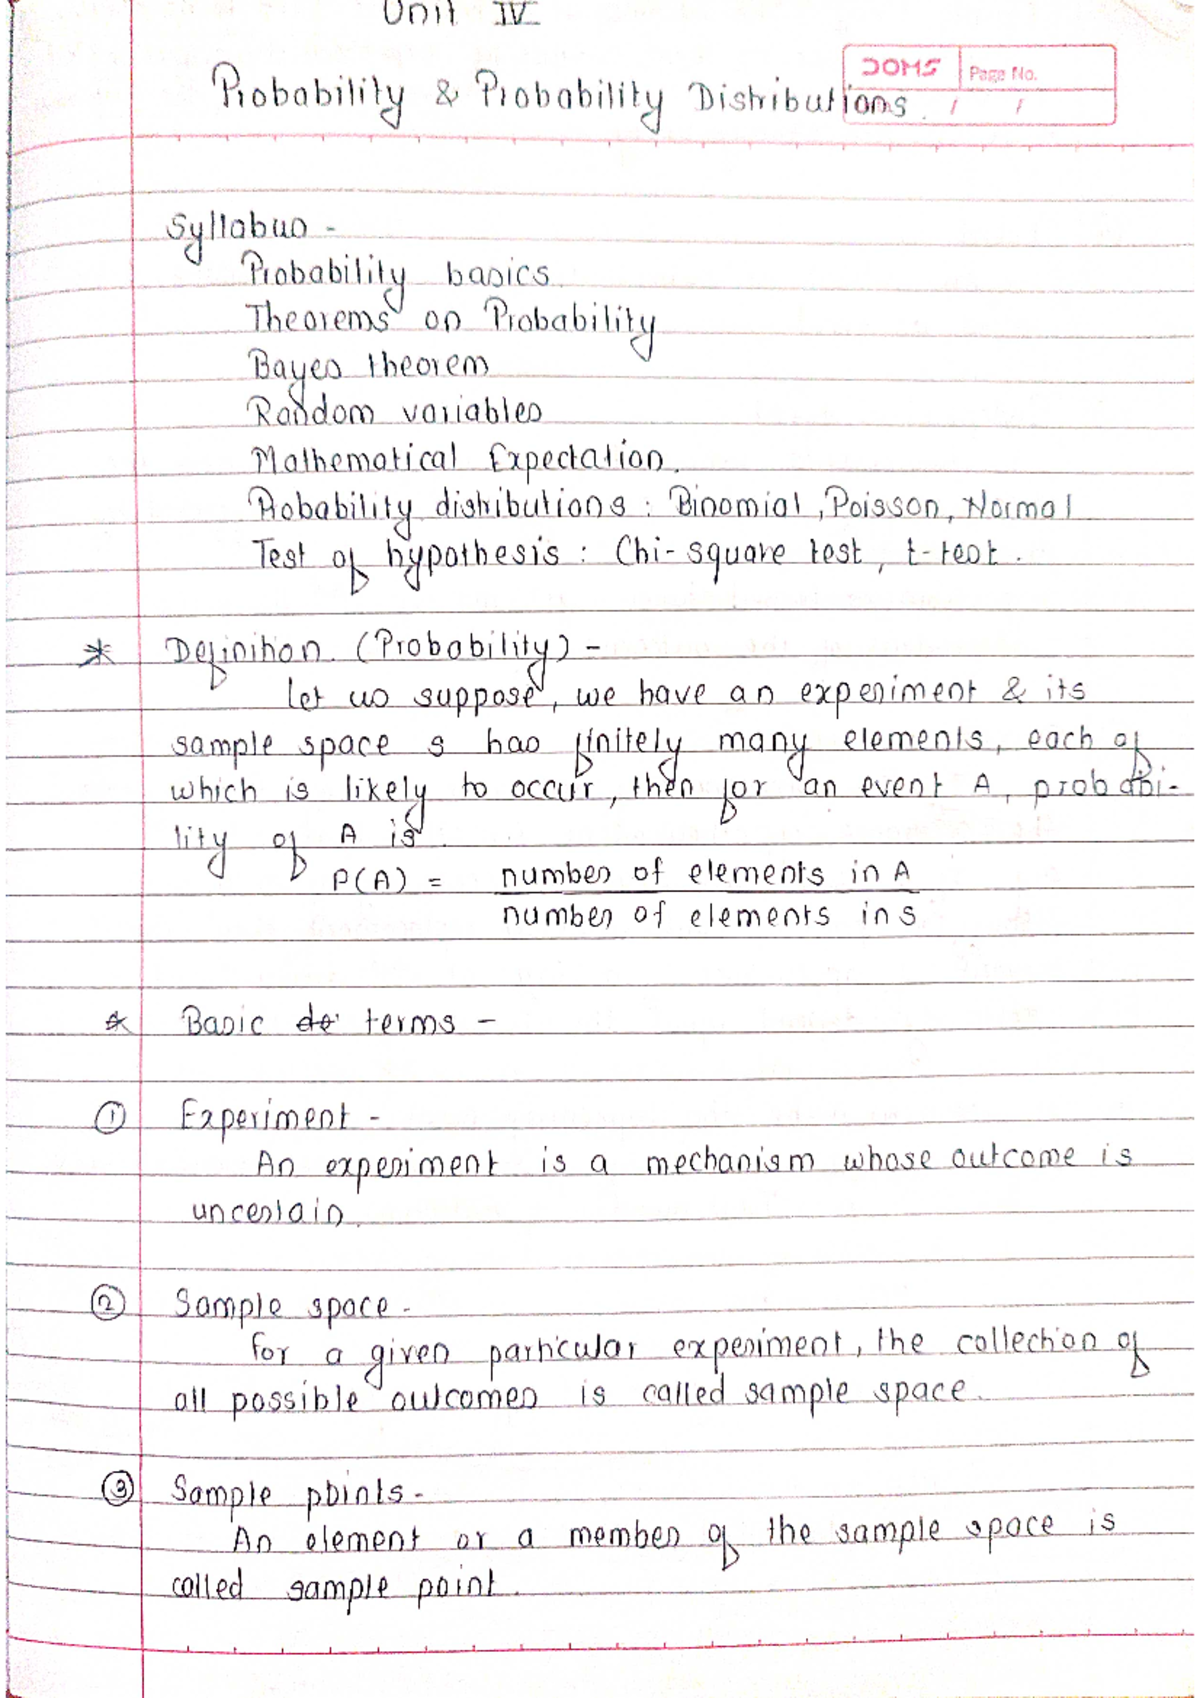 Unit IV
DOMS Page No.
Probability & Probability Distributions.
/ /
Syllabus -
Probability basics.
Theorems on Probability
Bayes theorem
Random variables
Mathematical Expectation.
Probability distributions : Binomial, Poisson, Normal
Test of hypothesis : Chi-square test, t-test.
* Definition. (Probability) -
let us suppose, we have an experiment & its
sample space s has finitely many elements, each of
which is likely to occur, then for an event A, probabi-
lity of A is
P(A) = number of elements in A
number of elements in s
* Basic de terms -
① Experiment -
An experiment is a mechanism whose outcome is
uncertain.
② Sample space -
for a given particular experiment, the collection of
all possible outcomes is called sample space.
③ Sample points -
An element or a member of the sample space is
called sample point.